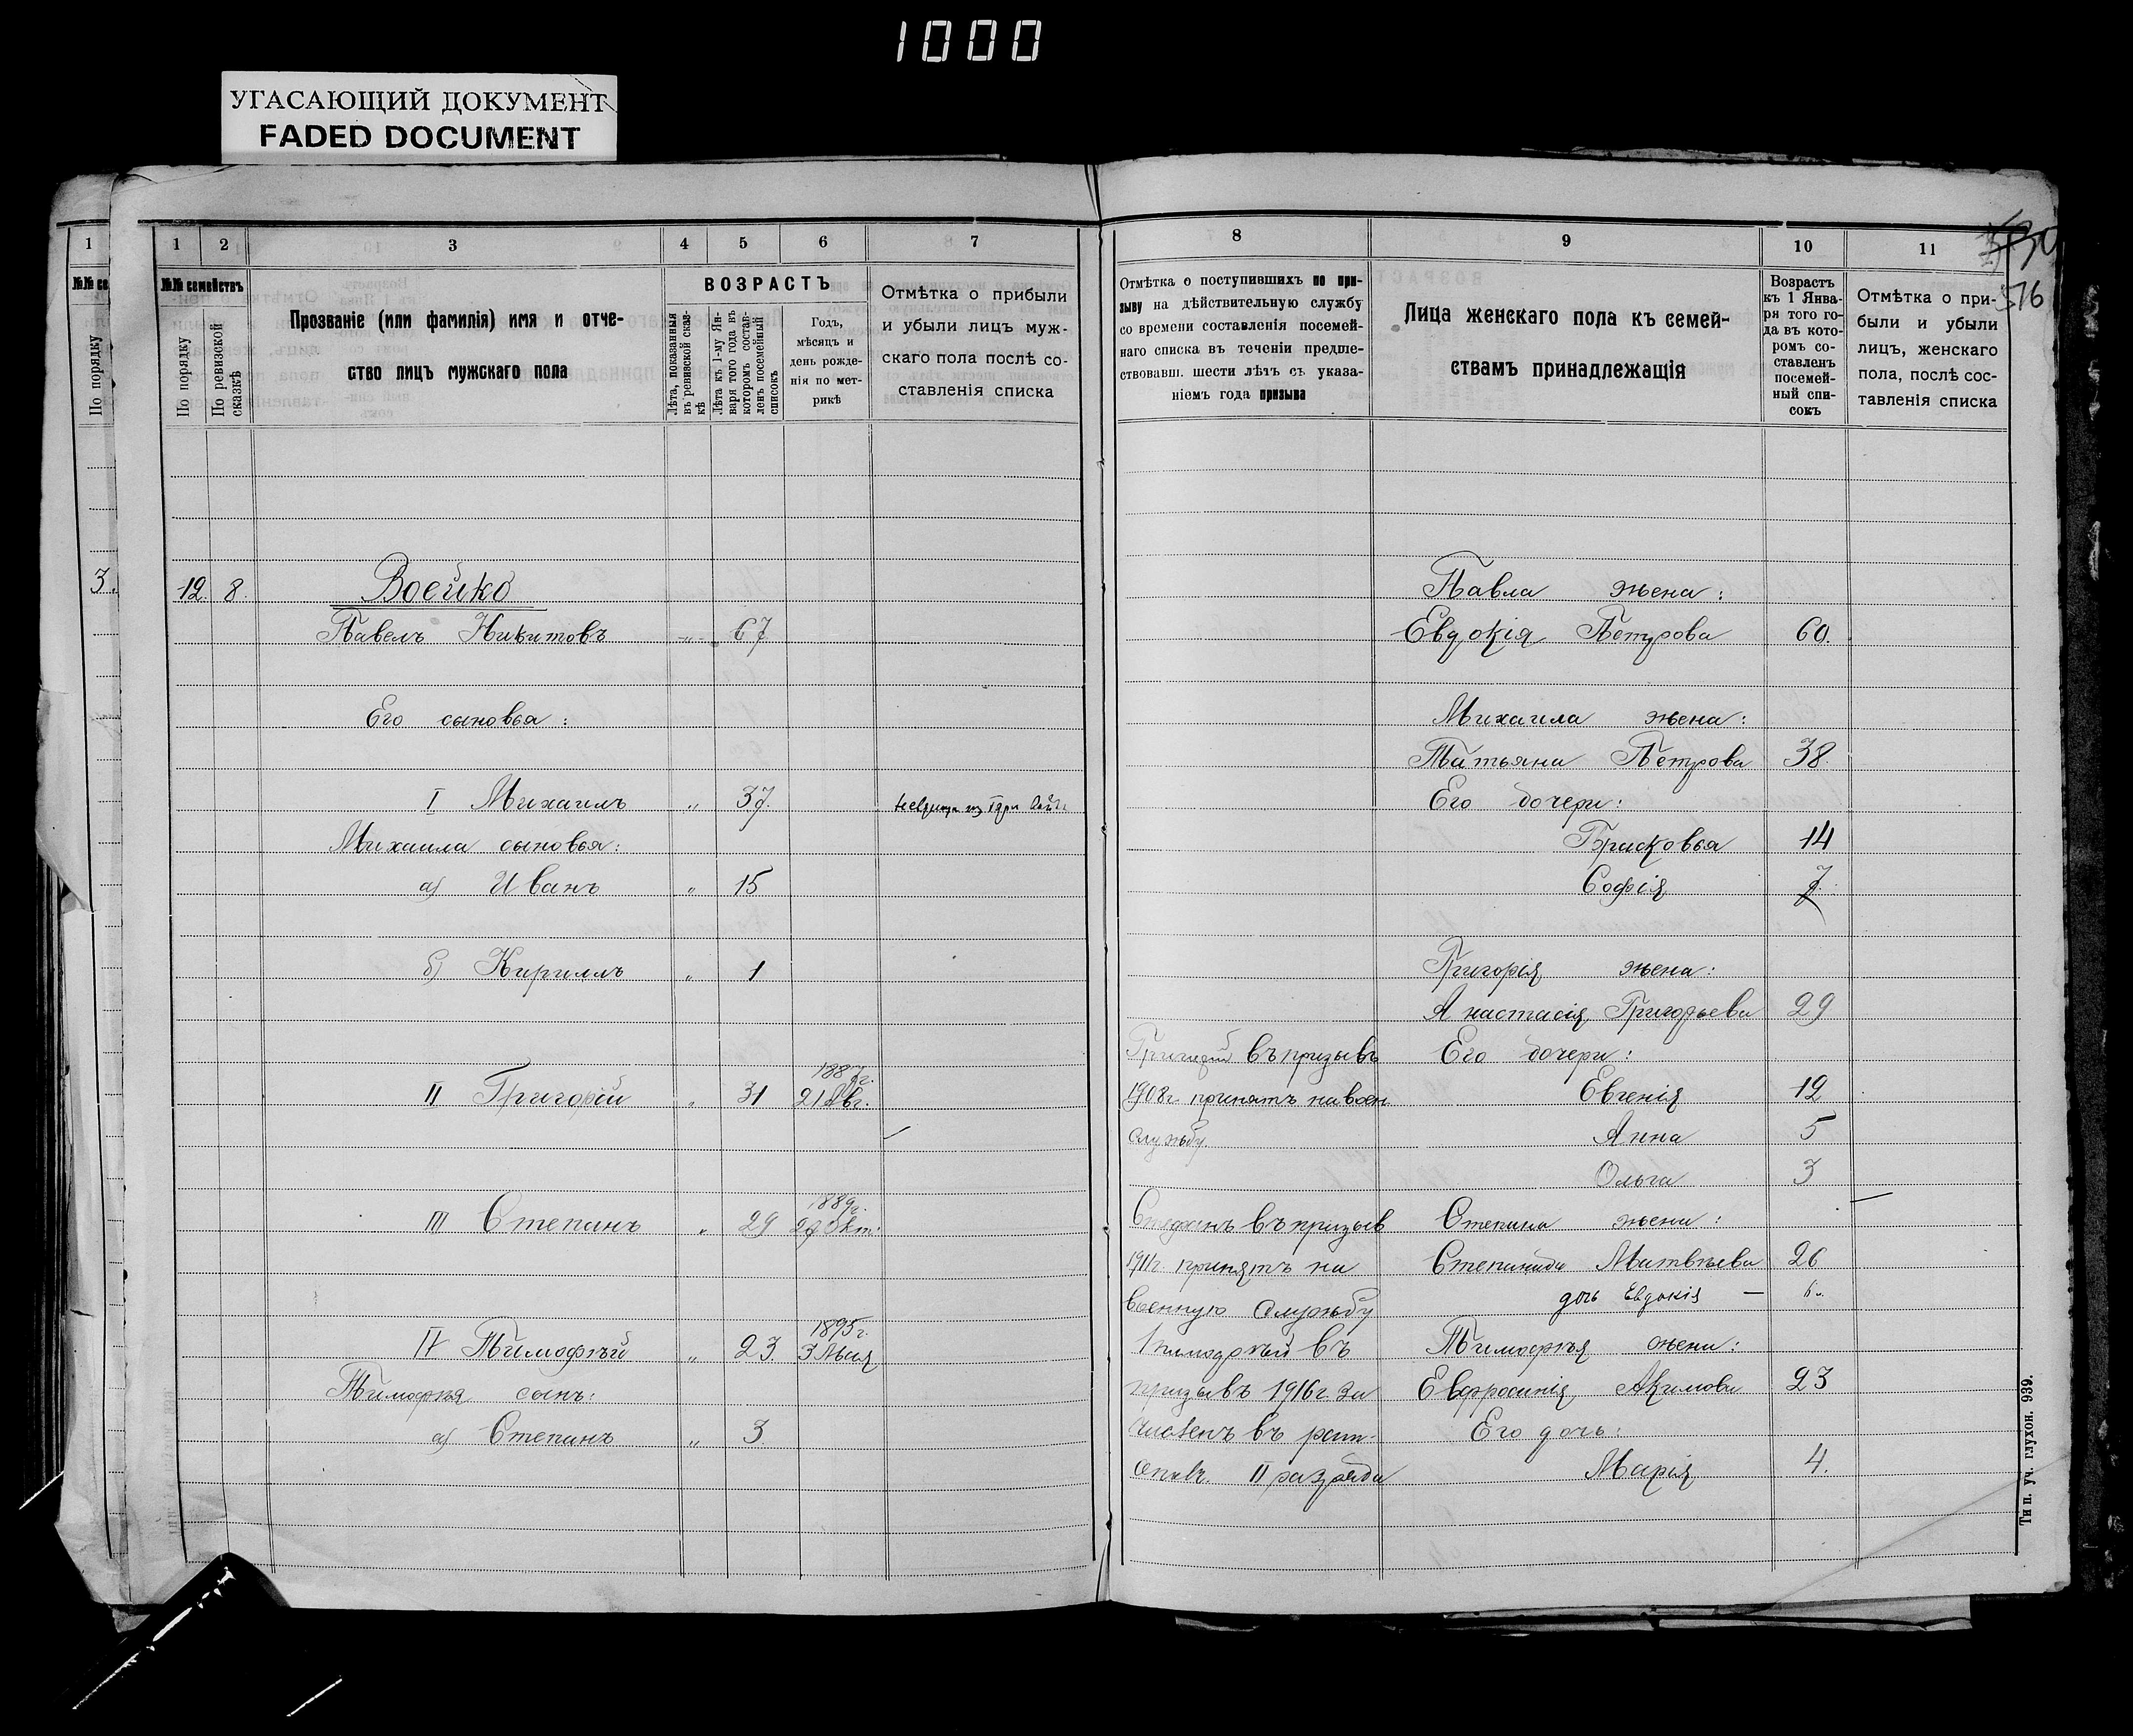 1000
УГАСАЮЩИЙ ДОКУМЕНТ
FADED DOCUMENT
1
№№ се
По порядку
3.
1 2 3 4 5 6 7
№№ семействъ
По порядку
По ревизской сказкѣ
Прозваніе (или фамилія) имя и отче-
ство лицъ мужскаго пола
ВОЗРАСТЪ
Лѣта, показанныя
въ ревизской сказ-
кѣ
Лѣта къ 1-му Ян-
варя того года въ
которомъ состав-
ленъ посемейный
списокъ
Годъ,
мѣсяцъ и
день рожде-
нія по мет-
рикѣ
Отмѣтка о прибыли
и убыли лицъ муж-
скаго пола послѣ со-
ставленія списка
12. 8. Воейко
Павелъ Никитовъ -„- 67
Его сыновья:
I Михаилъ „ 37.
Михаила сыновья:
а) Иванъ „ 15
б) Кириллъ „ 1
1887г.
II Григорій „ 31 21 Авг.
1889г.
III Степанъ „ 29 29 Окт.
1895г.
IV Тимофѣй „ 23. 3 Мая
Тимофея сынъ:
а) Степанъ „ 3.
8 9 10 11
576
Отмѣтка о поступившихъ по при-
зыву на дѣйствительную службу
со времени составленія посемей-
наго списка въ теченіи предше-
ствовавш. шести лѣтъ съ указа-
ніемъ года призыва
Лица женскаго пола къ семей-
ствамъ принадлежащія
Возрастъ
къ 1 Янва-
ря того го-
да въ кото-
ромъ со-
ставленъ
посемей-
ный спи-
сокъ
Отмѣтка о при-
были и убыли
лицъ, женскаго
пола, послѣ сос-
тавленія списка
Павла жена:
Евдокія Петрова 60.
Михаила жена:
Татьяна Петрова 38.
Его дочери:
Прасковья 14
Софія 7.
Григорія жена:
Анастасія Григорьева 29
Григорій въ призывъ Его дочери:
1908г. принятъ на воен. Евгенія 12
службу. Анна 5
Ольга 3
Степанъ въ призыв Степана жена:
1911г. принятъ на Степанида Матвѣева 26
военную службу дочь Евдокія —
Тимофѣй въ Тимофея жена:
призывъ 1916г. за Евфросинія Акимова 23
численъ въ рат- Его дочь:
II разряда Марія 4.
Тип. уч. глухон. 939.